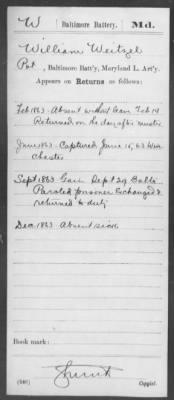 W | Baltimore Battery. | Md.
William Weitzel
Pvt, Baltimore Batt'y, Maryland L. Art'y.
Appears on Returns as follows:
Feb 1863 Absent without leave Feb 19
Returned on the day after muster
June 1863 Captured June 15, 63 Win
chester
Sept 1863 Gain Sept 29 Balto
Paroled prisoner Exchanged &
returned to duty
Dec 1863 Absent sick
Book mark:
(546)
Copyist.